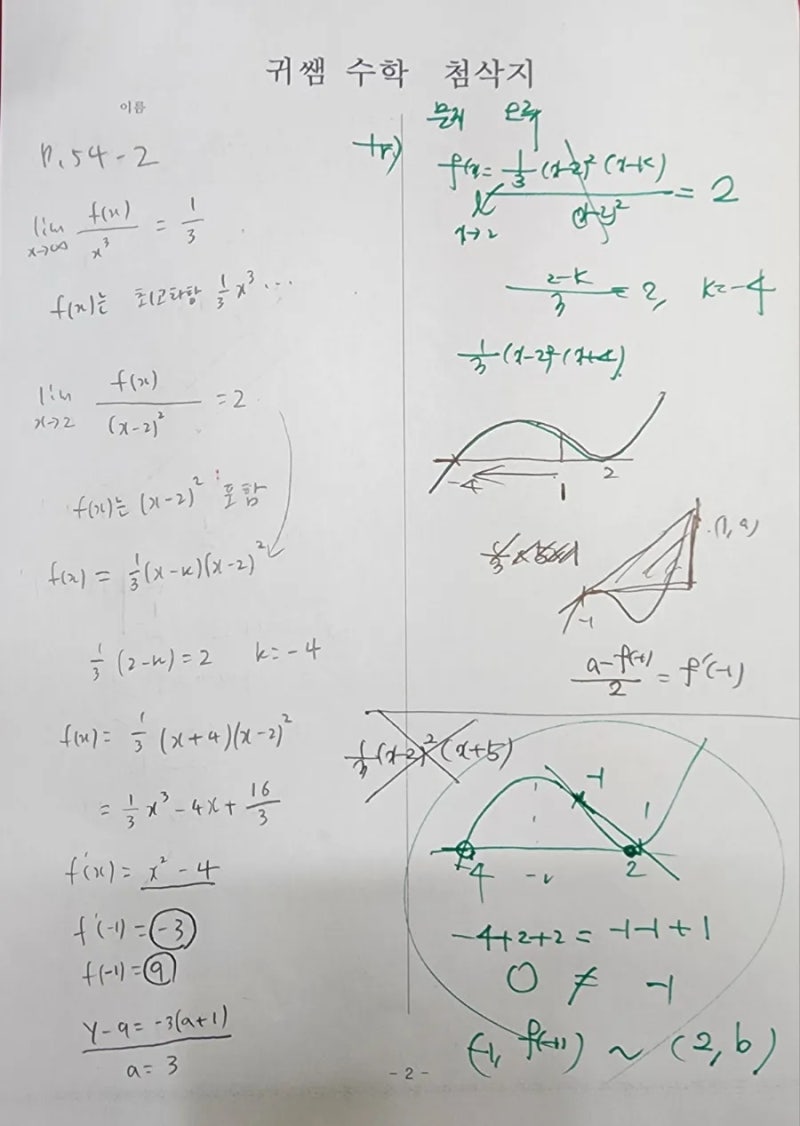 귀쌤 수학 첨삭지
이름
p.54-2
lim x→∞ f(x)/x³ = 1/3
f(x)는 최고차항 1/3 x³ ...
lim x→2 f(x)/(x-2)² = 2
f(x)는 (x-2)² 포함
f(x) = 1/3(x-k)(x-2)²
1/3(2-k)=2 k=-4
f(x)= 1/3 (x+4)(x-2)²
= 1/3 x³ - 4x + 16/3
f'(x)= x² - 4
f'(-1)= -3
f(-1)= 9
y-9=-3(a+1)
a=3
문제 오류
tr)
f(x= 1/3 (x-2)² (x-k)
x→2 (x-2)² = 2
2-k/3 = 2, k=-4
1/3 (x-2)² (x+4)
-4 1 2
(1, a)
-1
a-f(-1)/2 = f'(-1)
1/3 (x-2)² (x+5)
-1 1
-4 2
-4+2+2 = -1-1+1
0 ≠ -1
(-1, f(-1)) ~ (2, b)
- 2 -